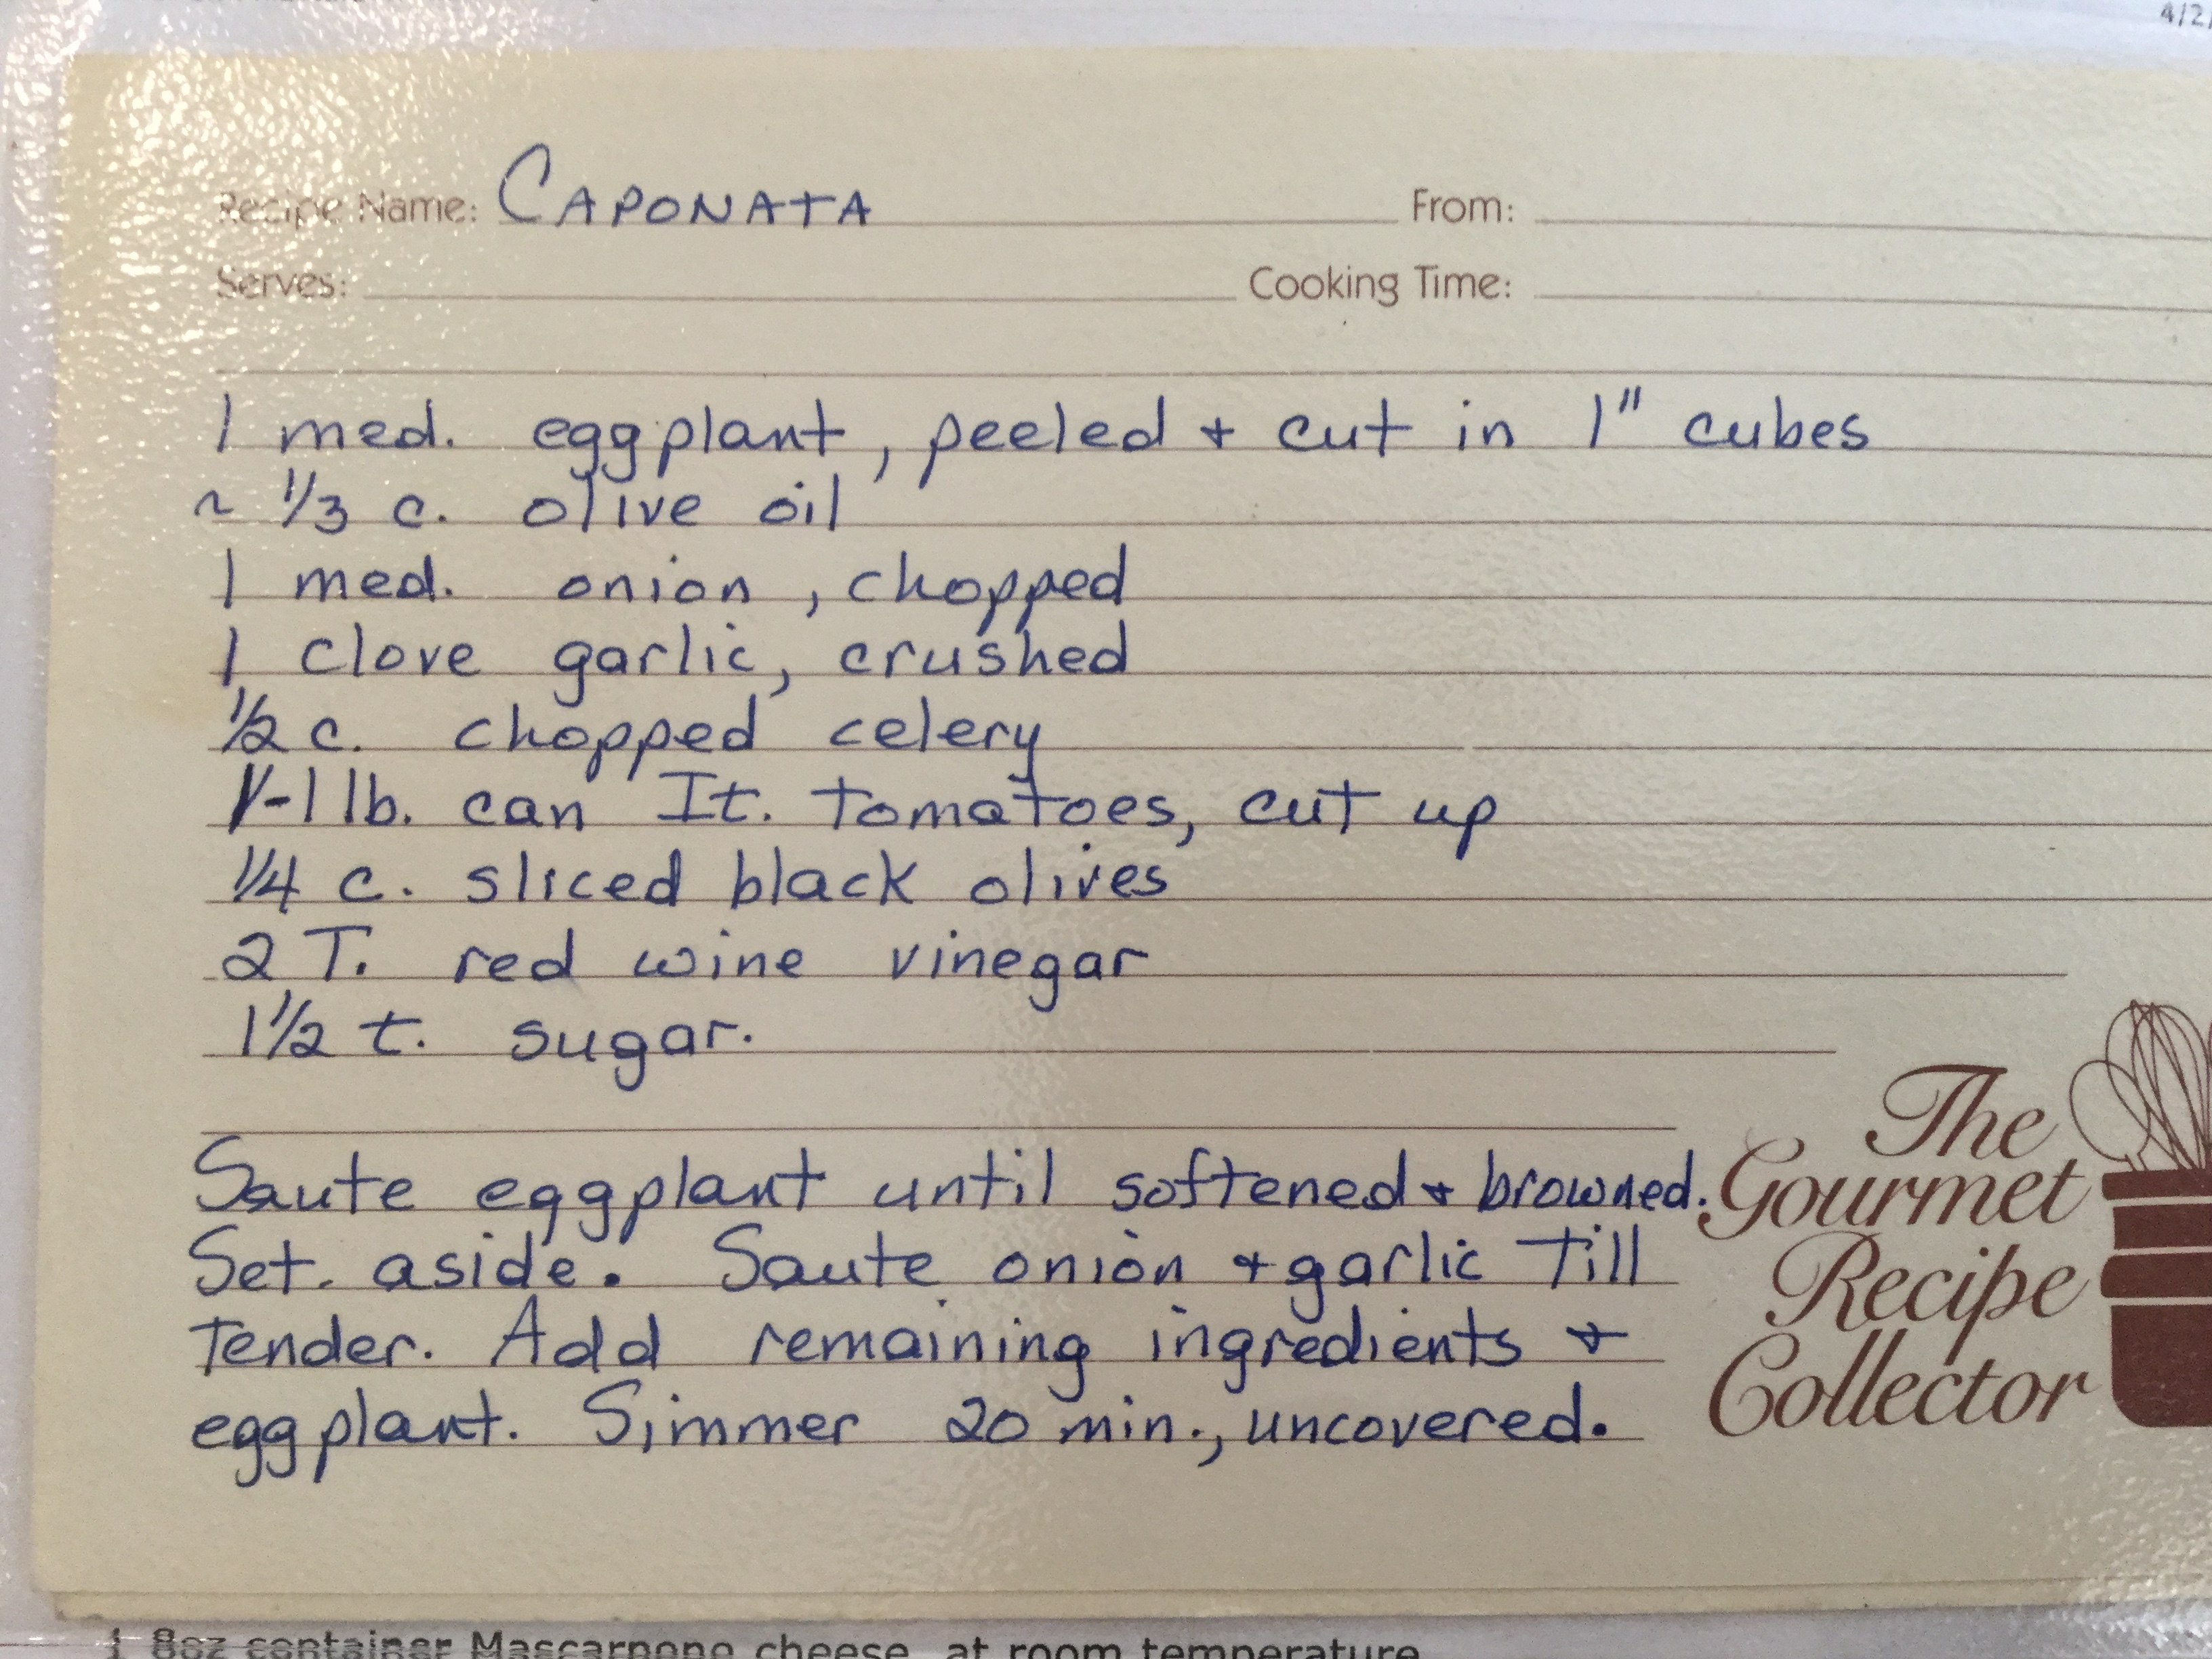 4/2
Recipe Name: CAPONATA From:
Serves: Cooking Time:
1 med. eggplant, peeled + cut in 1" cubes
~ 1/3 c. olive oil
1 med. onion, chopped
1 clove garlic, crushed
1/2 c. chopped celery
1-1 lb. can It. tomatoes, cut up
1/4 c. sliced black olives
2 T. red wine vinegar
1 1/2 t. sugar.
Saute eggplant until softened + browned.
Set. aside. Saute onion + garlic till
tender. Add remaining ingredients +
eggplant. Simmer 20 min., uncovered.
The
Gourmet
Recipe
Collector
1 8oz container Mascarpone cheese, at room temperature